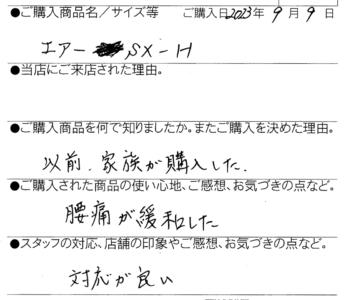 ●ご購入商品名／サイズ等　ご購入日2023年 9月 9日
エアー SX-H
●当店にご来店された理由。
●ご購入商品を何で知りましたか。またご購入を決めた理由。
以前、家族が購入した.
●ご購入された商品の使い心地、ご感想、お気づきの点など。
腰痛が緩和した
●スタッフの対応、店舗の印象やご感想、お気づきの点など。
対応が良い